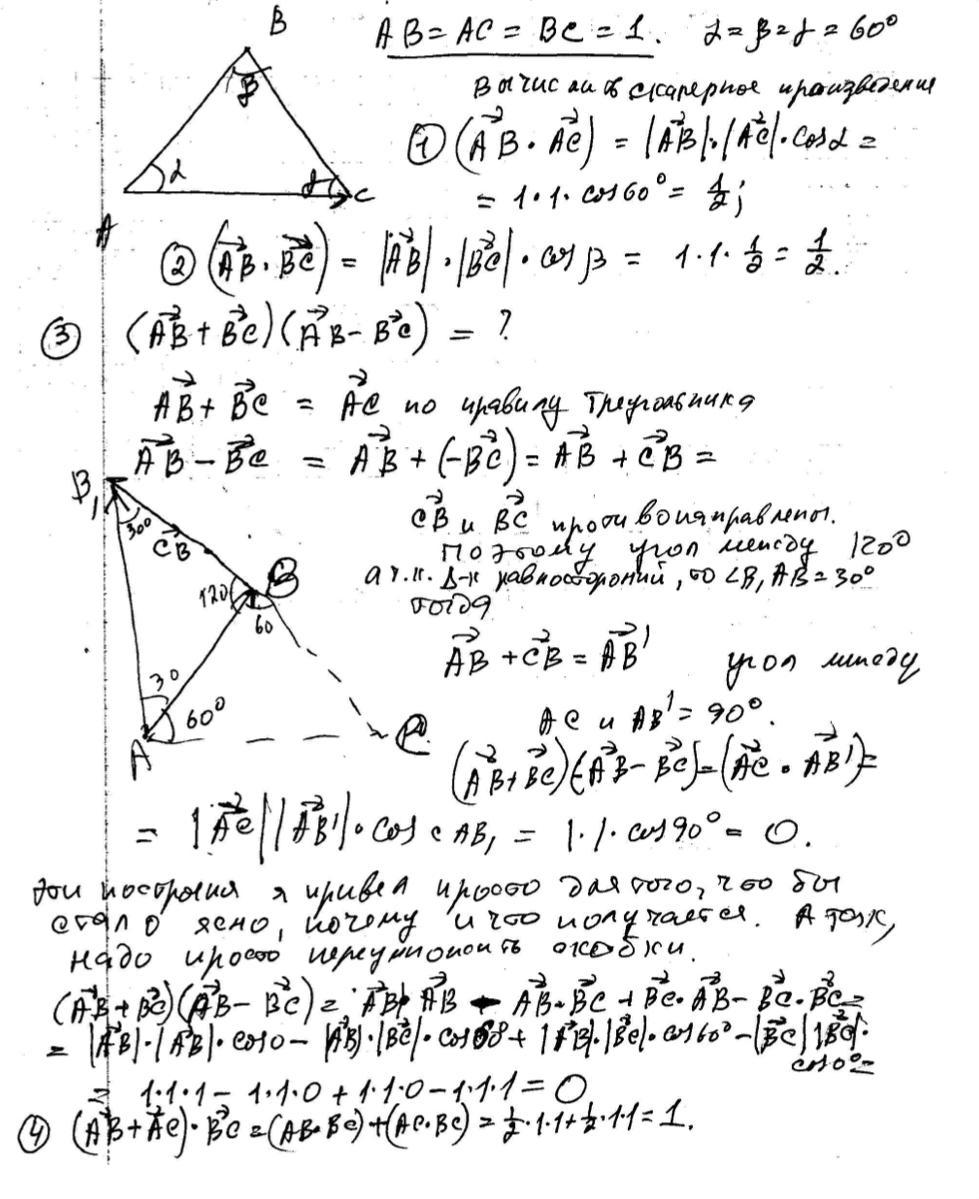 B
AB = AC = BC = 1. α = β = γ = 60°
β
Вычислить скалярное произведение
α γ
A C
① (AB · AC) = |AB| · |AC| · cos α =
= 1·1· cos 60° = 1/2;
② (AB · BC) = |AB| · |BC| · cos β = 1·1· 1/2 = 1/2.
③ (AB + BC)(AB - BC) = ?
AB + BC = AC по правилу треугольника
AB - BC = AB + (-BC) = AB + CB =
B₁
30°
CB
CB и BC противонаправлены.
Поэтому угол между 120°
а т.к. Δ-к равностороний, то ∠B₁AB = 30°
тогда
120 B
60
AB + CB = AB' угол между
AC и AB' = 90°.
30
60°
A C
(AB + BC)(AB - BC) = (AC · AB') =
= |AC| |AB'| · cos CAB₁ = 1·1· cos 90° = 0.
Эти построения я привел просто для того, что бы
стало ясно, почему и что получается. А так,
надо просто перемножить скобки.
(AB + BC)(AB - BC) = AB · AB - AB · BC + BC · AB - BC · BC =
= |AB| · |AB| · cos 0 - |AB| · |BC| · cos 60° + |AB| · |BC| · cos 60° - |BC| |BC| ·
cos 0° =
= 1·1·1 - 1·1·0 + 1·1·0 - 1·1·1 = 0
④ (AB + AC) · BC = (AB · BC) + (AC · BC) = 1/2 ·1·1 + 1/2 ·1·1 = 1.